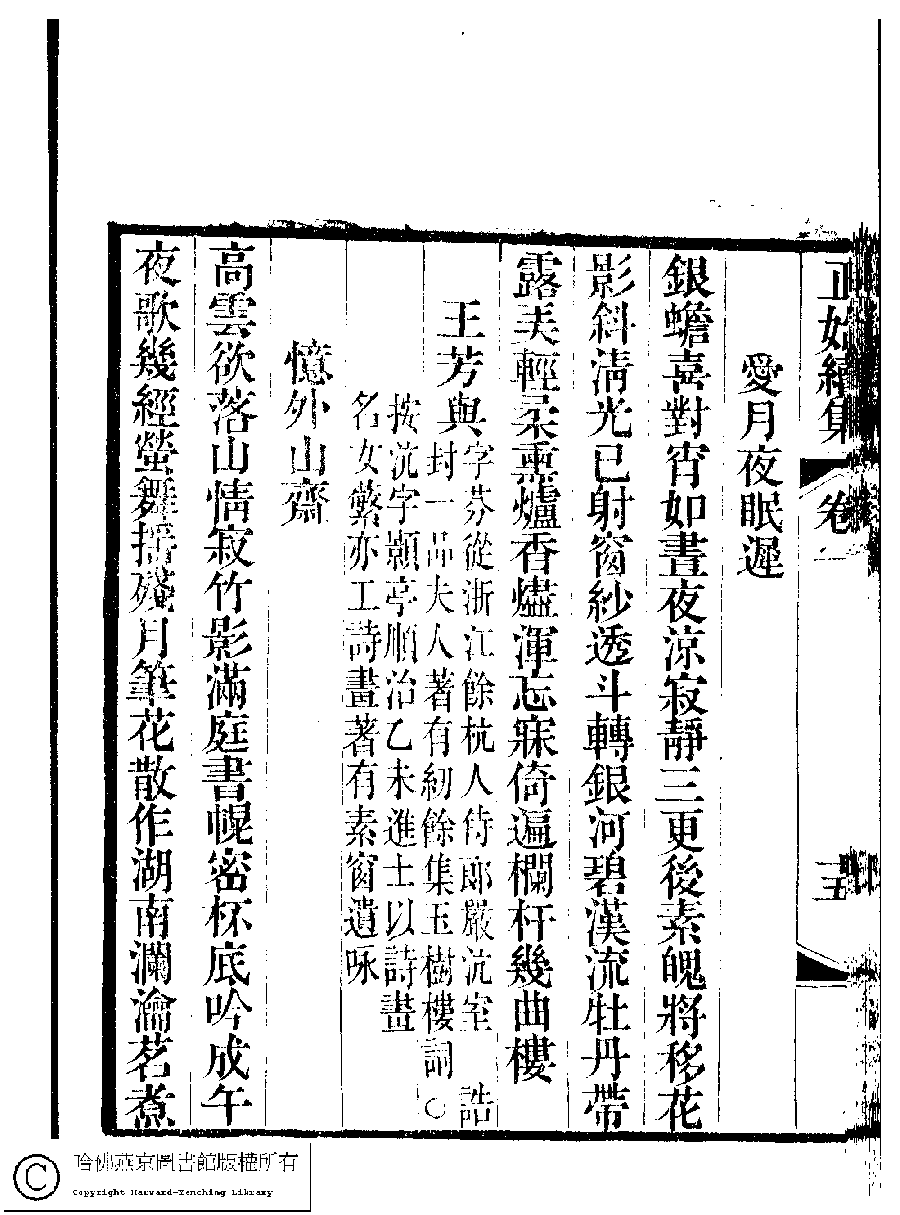 正始續集 卷一 五
愛月夜眠遲
銀蟾喜對宵如晝夜涼寂靜三更後素魄將移花
影斜清光已射窗紗透斗轉銀河碧漢流牡丹帶
露美輕柔熏爐香燼渾忘寐倚遍欄杆幾曲樓
王芳與
字芬從浙江餘杭人侍郎嚴沆室 誥
封一品夫人著有紉餘集玉樹樓詞○
按沆字顥亭順治乙未進士以詩畫
名女蘩亦工詩畫著有素窗遺咏
憶外山齋
高雲欲落山情寂竹影滿庭書幌密杯底吟成午
夜歌幾經螢舞搖殘月筆花散作湖南瀾瀹茗煮
哈佛燕京圖書館版權所有
Copyright Harvard-Yenching Library